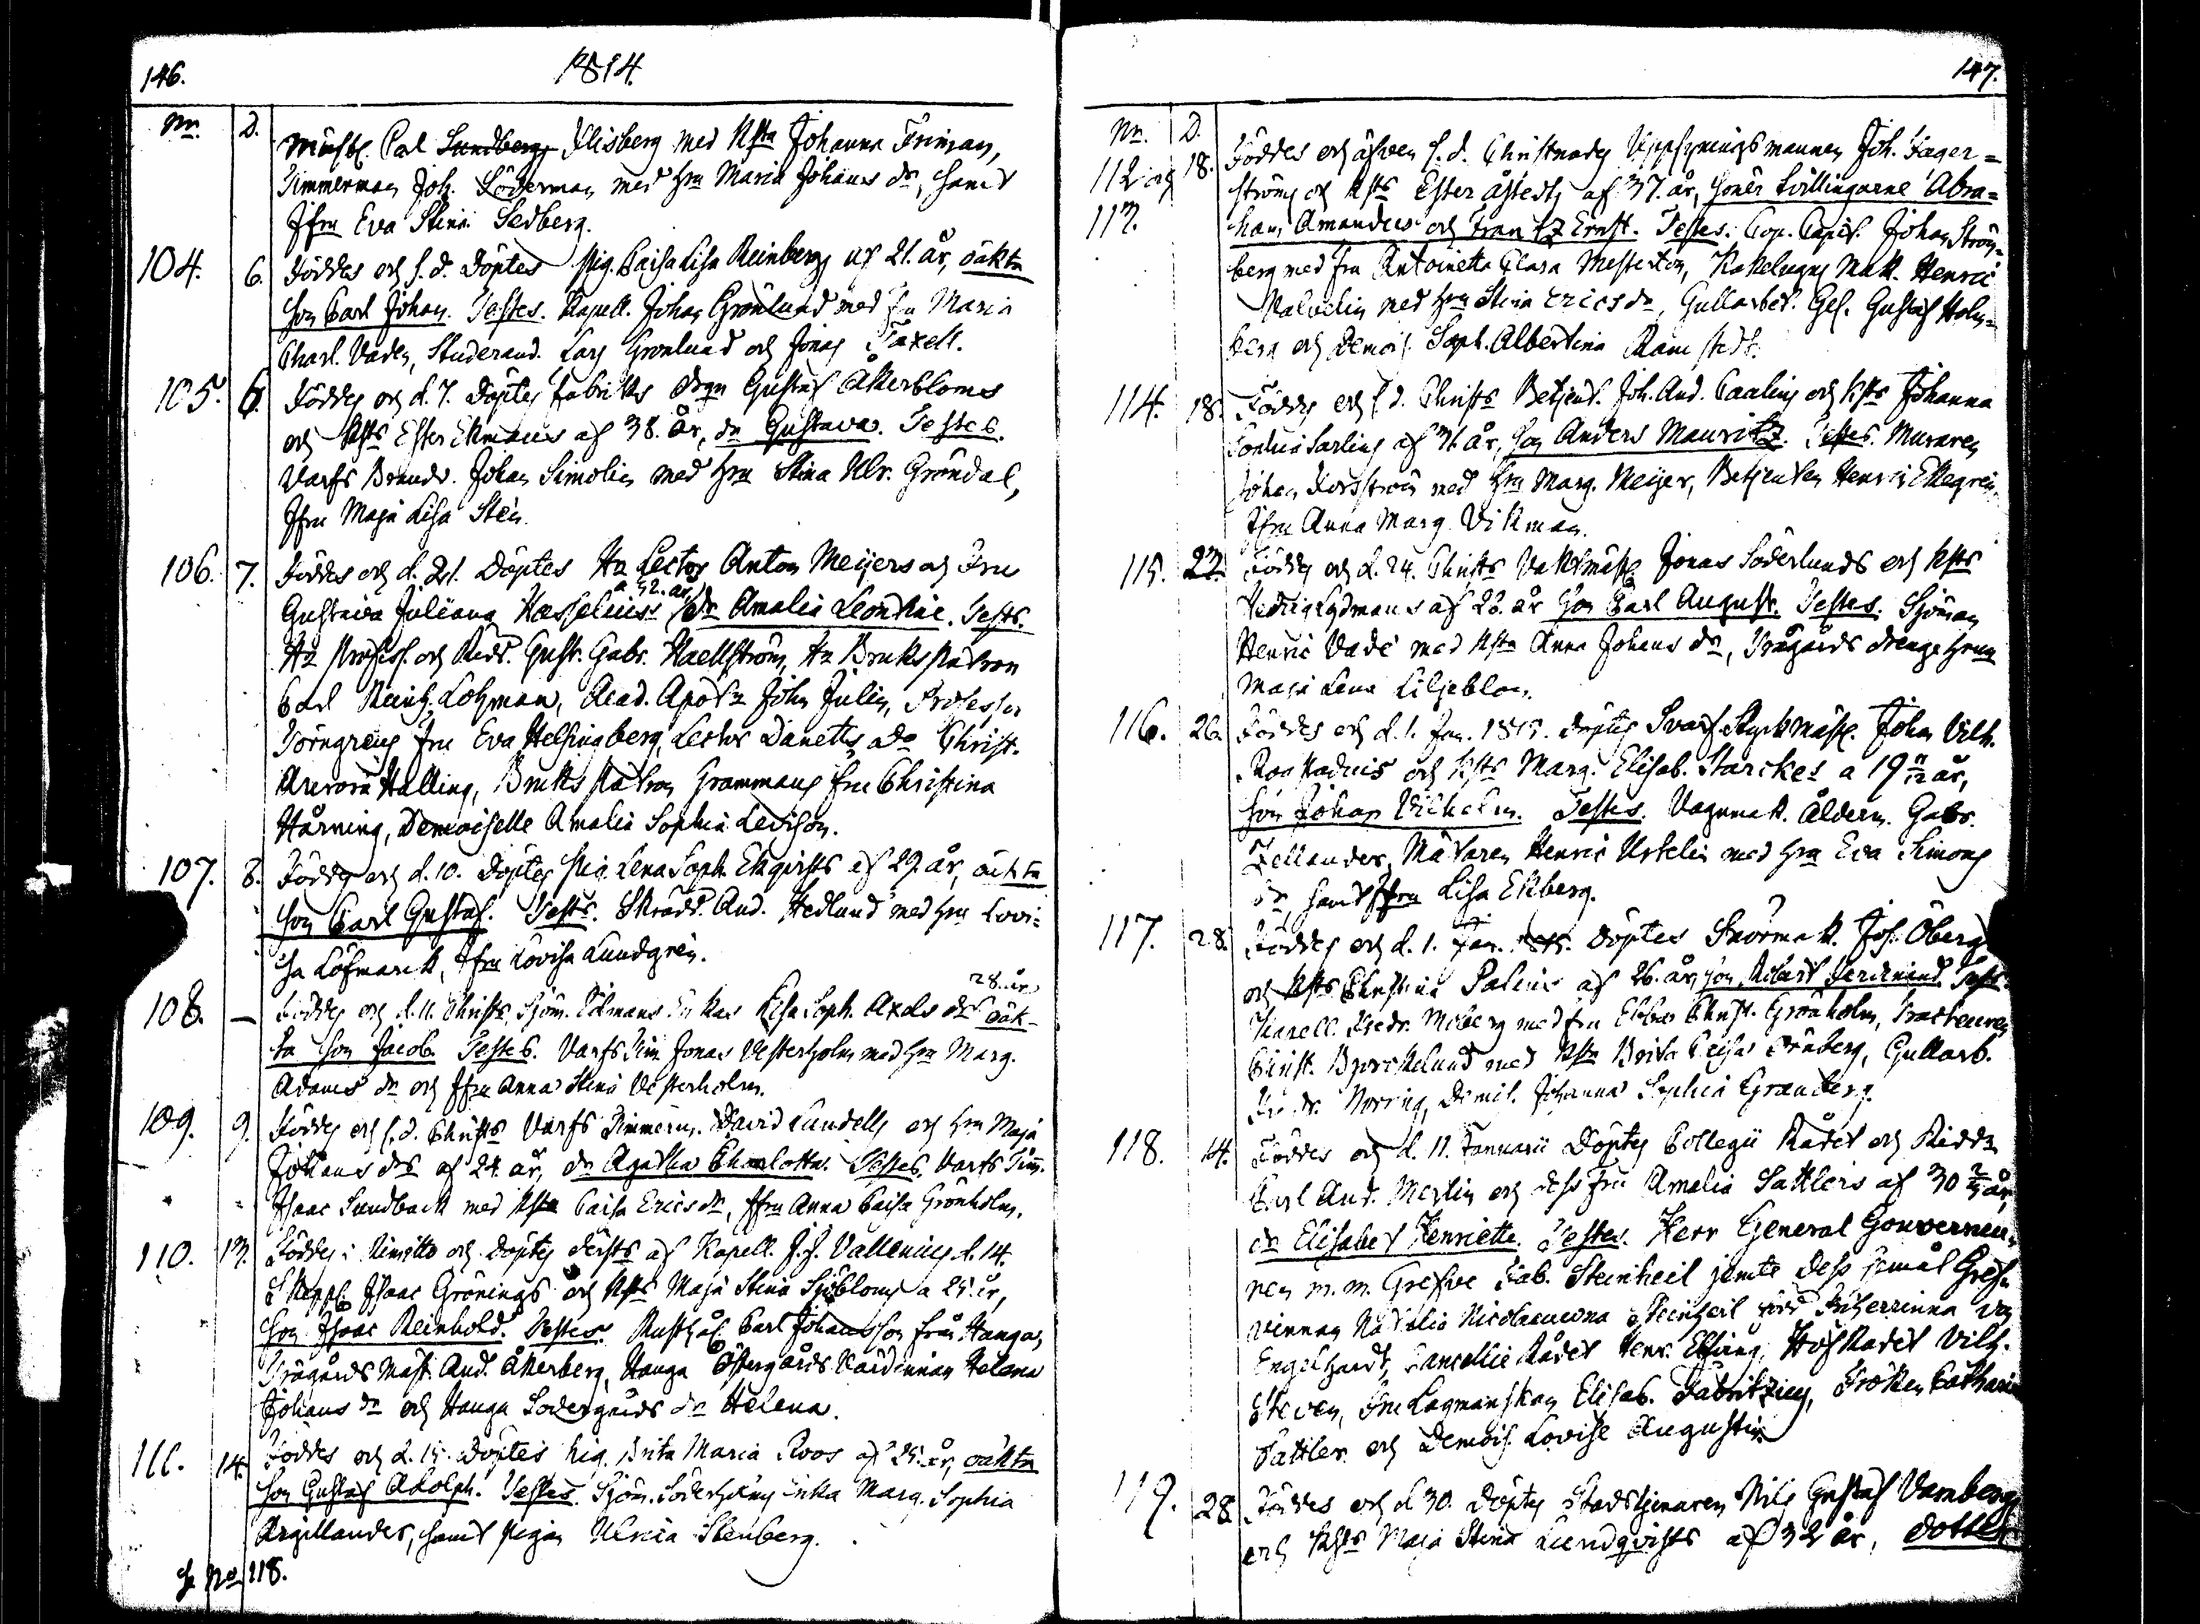 146.
1814.
Nr. D.
Carl Sundberg Flisberg med Hstr Johanna Friman,
Timmerman Joh. Söderman med Hru Maria Johans dr, samt
Jfru Eva Stina Sedberg.
104. 6. Föddes och s. d. Döptes pig. Caisa Lisa Reinberg af 21. år, oäkta
son Carl Johan. Testes. Kapell. Johan Grönlund med Fru Maria
Charl. Vadén, Studerand. Lars Grönlund och Jonas Taxell.
105. 6. Föddes och d. 7. Döptes Fabriks Gustaf Åkerbloms
och Hsts Ester Ekmans af 38. år, dr Gustava. Testes.
Varfs Johan Simolin med Hru Stina Ulr. Gröndal,
Jfru Maja Lisa Sten.
106. 7. Föddes och d. 21. Döptes Hr Lector Anton Meijers och Fru
Gustava Juliana Hesselius a 42. år, dr Amalia Leontine. Tests.
Hr Profess. och Ridd. Gust. Gabr. Haellström, Hr Bruks Patron
Carl Reinh. Lohman, Acad. Apot. John Julin, Professor
Törngrens Fru Eva Helsingberg, Lector Danetts do Christ.
Aurora Halling, Bruks Patron Grammans Fru Christina
Hårning, Demoiselle Amalia Sophia Levison.
107. 8. Föddes och d. 10. Döptes pig. Lena Soph. Ekqvists af 29. år, oäkta
son Carl Gustaf. Tests. Skrädd. And. Hedlund med Hru Lovi-
sa Löfmark, Jfru Lovisa Lundgren.
108. — Föddes och d. 11. Christs. Sjöm. Enkas Lisa Soph. Axels dr 28. år oäk-
ta son Jacob. Testes. Varfs Tim. Jonas Vesterholm med Hru Marg.
Adams dr och Jfru Anna Stina Vesterholm.
109. 9. Föddes och s. d. Christs Varfs Timmerm. David Lundells och Hru Maja
Johans drs af 24. år, dr Agatha Charlotta. Testes. Varfs Tim.
Isaac Sundback med Hstr Caisa Erics dr, Jfru Anna Caisa Grönholm.
110. 13. Föddes i Rimitto och Döptes af Kapell. J. J. Vallenius d. 14.
Skepp. Isaac Grönings och Hsts Maja Stina Sjöbloms a 25 år,
son Isaac Reinhold. Testes. Rusth. Carl Johansson från Hanga,
Trägårds Mäst. And. Åkerberg, Hanga Östergårds Värdinnan Helena
Johans dr och Hanga Södergårds dr Helena.
111. 14. Föddes och d. 15. Döptes pig. Brita Maria Roos af 25. år, oäkta
son Gustaf Adolph. Testes. Sjöm. enka Marg. Sophia
Argillander, samt pigan Ulrica Stenberg.
se No 118.
147.
Nr. D.
112 och 18. Föddes och äfven s. d. Christnades Uppsyningsmannen Joh. Fager=
113. ströms och Hsts Ester Åstedts af 37. år, söner tvillingarne Abra=
ham Amandus och Frantz Ernst. Testes. Cop. Capit. Johan Ström=
berg med fru Antoinetta Clara Mesterton, Kakelugns Mak. Henric
Malvelin med Hru Stina Erics dr, Gullarbet. Ges. Gustaf Holm=
berg och Demois. Soph. Albertina Ramstedt.
114. 18. Föddes och s. d. Christs Betjent. Joh. And. Paalins och Hsts Johanna
Sophia Sarlins af 31 år, son Anders Mauritz. Testes. Muraren
Johan Forsström med Hru Marg. Meijer, Betjenten Henric Ekegren,
Jfru Anna Marg. Vikman.
115. 23. Föddes och d. 24. Christs Vaktmäst. Jonas Söderlunds och Hsts
Hedvig Lydmans af 28. år son Carl August. Testes. Sjöman
Henric Vadé med Hstr Anna Johans dr, Trägårds drengs Hrun
Maja Lena Liljeblom.
116. 26. Föddes och d. 1. Jan. 1815. Döptes Svarf. Styckmäst. Johan Vilh.
och Hsts Marg. Elisab. Starckes a 19 11/12 år,
son Johan Vilhelm. Testes. Vagnmak. Ålderm. Gabr.
Zellander, Målaren Henric Urtelin med Hru Eva Simons
dr samt Jfru Lisa Ekberg.
117. 28. Föddes och d. 1. Jan. 1815. Döptes Snörmak. Joh. Öbergs
och Hsts Christina Palins af 26. år, son Robert Ferdinand. Tests.
Kapell. Fredr. Moberg med fru Ebba Christ. Grönholm, Tracteuren
Christ. Björcklund med Hstr Brita Caisa Granberg, Gullarb.
Fredr. Norring, Demil. Johanna Sophia Granberg.
118. 14. Föddes och d. 11. Januarii Döptes Collegii Rådet och Riddr
Carl And. Mertin och dess Fru Amalia Sattlers af 30 år,
dr Elisabet Henriette. Testes. Herr General Gouverneu=
ren m. m. Grefve Fab. Steinheil jemte dess gemål Gref=
vinnan Natalia Nicolaewna Steinheil född Friherrinna von
Engelhardt, Cancellie Rådet Henr. Efving, Hof Rådet Vilh.
Steven, Fru Lagmanskan Elisab. Fabritzius, Fröken Catharina
Sattler och Demois. Lovise Augustin.
119. 28 Föddes och d 30. Döptes Stadstjenaren Nils Gustaf Vambergs
och Hsts Maja Stina Lundqvists af 32 år, dotter